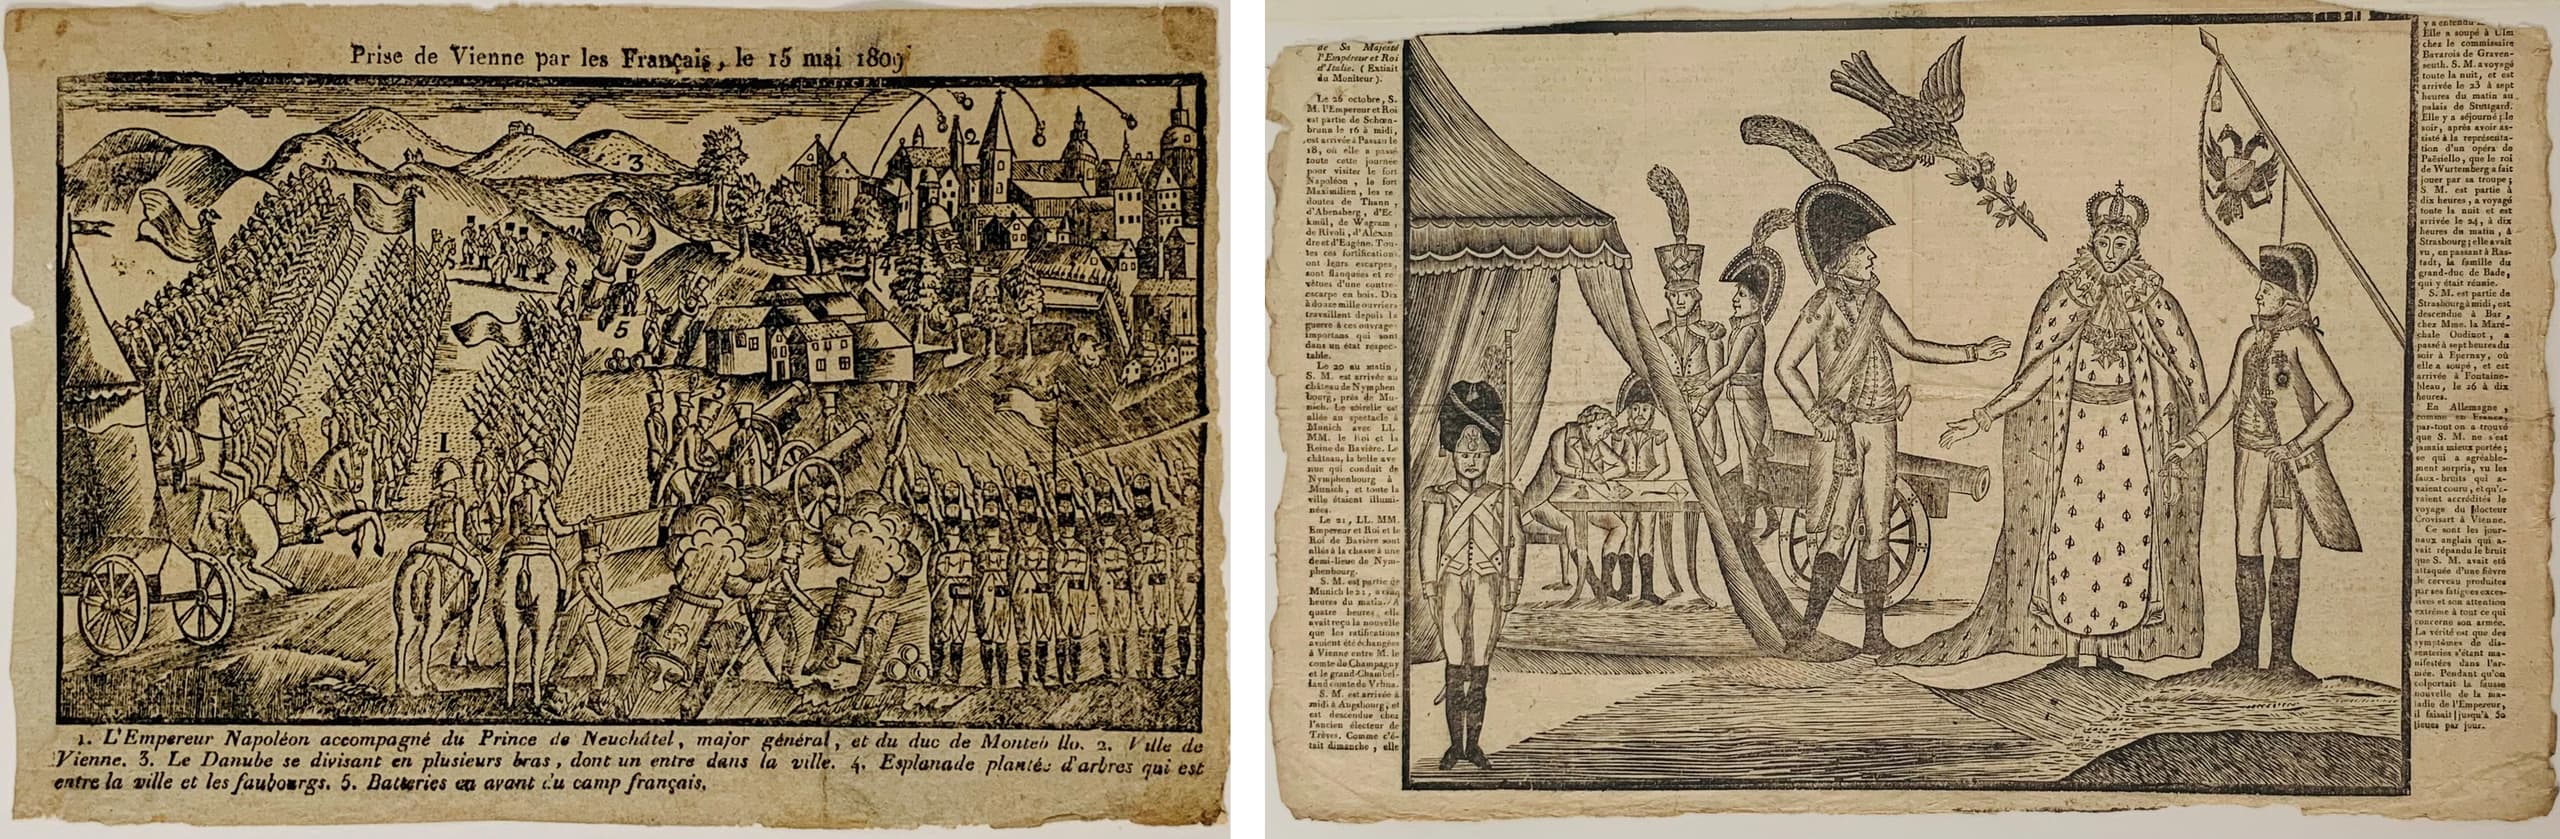 Prise de Vienne par les Français, le 15 mai 1809
3
2
4
5
5
1
1. L'Empereur Napoléon accompagné du Prince de Neuchâtel, major général, et du duc de Monteb llo. 2. Ville de
Vienne. 3. Le Danube se divisant en plusieurs bras, dont un entre dans la ville. 4. Esplanade plantée d'arbres qui est
entre la ville et les faubourgs. 5. Batteries en avant du camp français.
de Sa Majesté
l'Empereur et Roi
d'Italie. (Extrait
du Moniteur).
Le 26 octobre, S.
M. l'Empereur et Roi
est partie de Schœn-
brunn le 16 à midi,
est arrivée à Passau le
18, où elle a passé
toute cette journée
pour visiter le fort
Napoléon, le fort
Maximilien, les re-
doutes de Thann,
d'Abensberg, d'Ec
kmül, de Wagram,
de Rivoli, d'Alexan
dre et d'Eugène. Tou-
tes ces fortifications
ont leurs escarpes,
sont flanquées et re-
vêtues d'une contre-
escarpe en bois. Dix
à douze mille ouvriers
travaillent depuis la
guerre à ces ouvrages
importans qui sont
dans un état respec-
table.
Le 20 au matin,
S. M. est arrivée au
château de Nymphen
bourg, près de Mu-
nich. Le soir elle est
allée au spectacle à
Munich avec LL.
MM. le Roi et la
Reine de Bavière. Le
château, la belle ave
nue qui conduit de
Nymphenbourg à
Munich, et toute la
ville étaient illumi-
nées.
Le 21, LL. MM.
Empereur et Roi et le
Roi de Bavière sont
allés à la chasse à une
demi-lieue de Nym-
phenbourg.
S. M. est partie de
Munich le 21, à cinq
heures du matin. A
quatre heures, elle
avait reçu la nouvelle
que les ratifications
avaient été échangées
à Vienne entre M. le
comte de Champagny
et le grand-Chambel-
land comte de Vrbna.
S. M. est arrivée à
midi à Augsbourg, et
est descendue chez
l'ancien électeur de
Trèves. Comme c'é-
tait dimanche, elle
y a entendu
Elle a soupé à Ulm
chez le commissaire
Bavarois de Graven-
seuth. S. M. a voyagé
toute la nuit, et est
arrivée le 23 à sept
heures du matin au
palais de Stuttgard.
Elle y a séjourné; le
soir, après avoir as-
sisté à la représenta-
tion d'un opéra de
Paësiello, que le roi
de Wurtemberg a fait
jouer par sa troupe;
S. M. est partie à
dix heures, a voyagé
toute la nuit et est
arrivée le 24, à dix
heures du matin, à
Strasbourg; elle avait
vu, en passant à Ras-
tadt, la famille du
grand-duc de Bade,
qui y était réunie.
S. M. est partie de
Strasbourg à midi, est
descendue à Bar,
chez Mme. la Maré-
chale Oudinot, a
passé à sept heures du
soir à Epernay, où
elle a soupé, et est
arrivée à Fontaine-
bleau, le 26 à dix
heures.
En Allemagne,
comme en France,
par-tout on a trouvé
que S. M. ne s'est
jamais mieux portée;
se qui a agréable-
ment surpris, vu les
faux-bruits qui a-
vaient couru, et qu'a-
vaient accrédités le
voyage du docteur
Crovisart à Vienne.
Ce sont les jour-
naux anglais qui a-
vait répandu le bruit
que S. M. avait été
attaquée d'une fièvre
de cerveau produites
par ses fatigues exces-
sives et son attention
extrême à tout ce qui
concerne son armée.
La vérité est que des
symptômes de dis-
senteries s'étant ma-
nifestées dans l'ar-
mée. Pendant qu'on
colportait la fausse
nouvelle de la ma-
ladie de l'Empereur,
il faisait jusqu'à 30
lieues par jour.